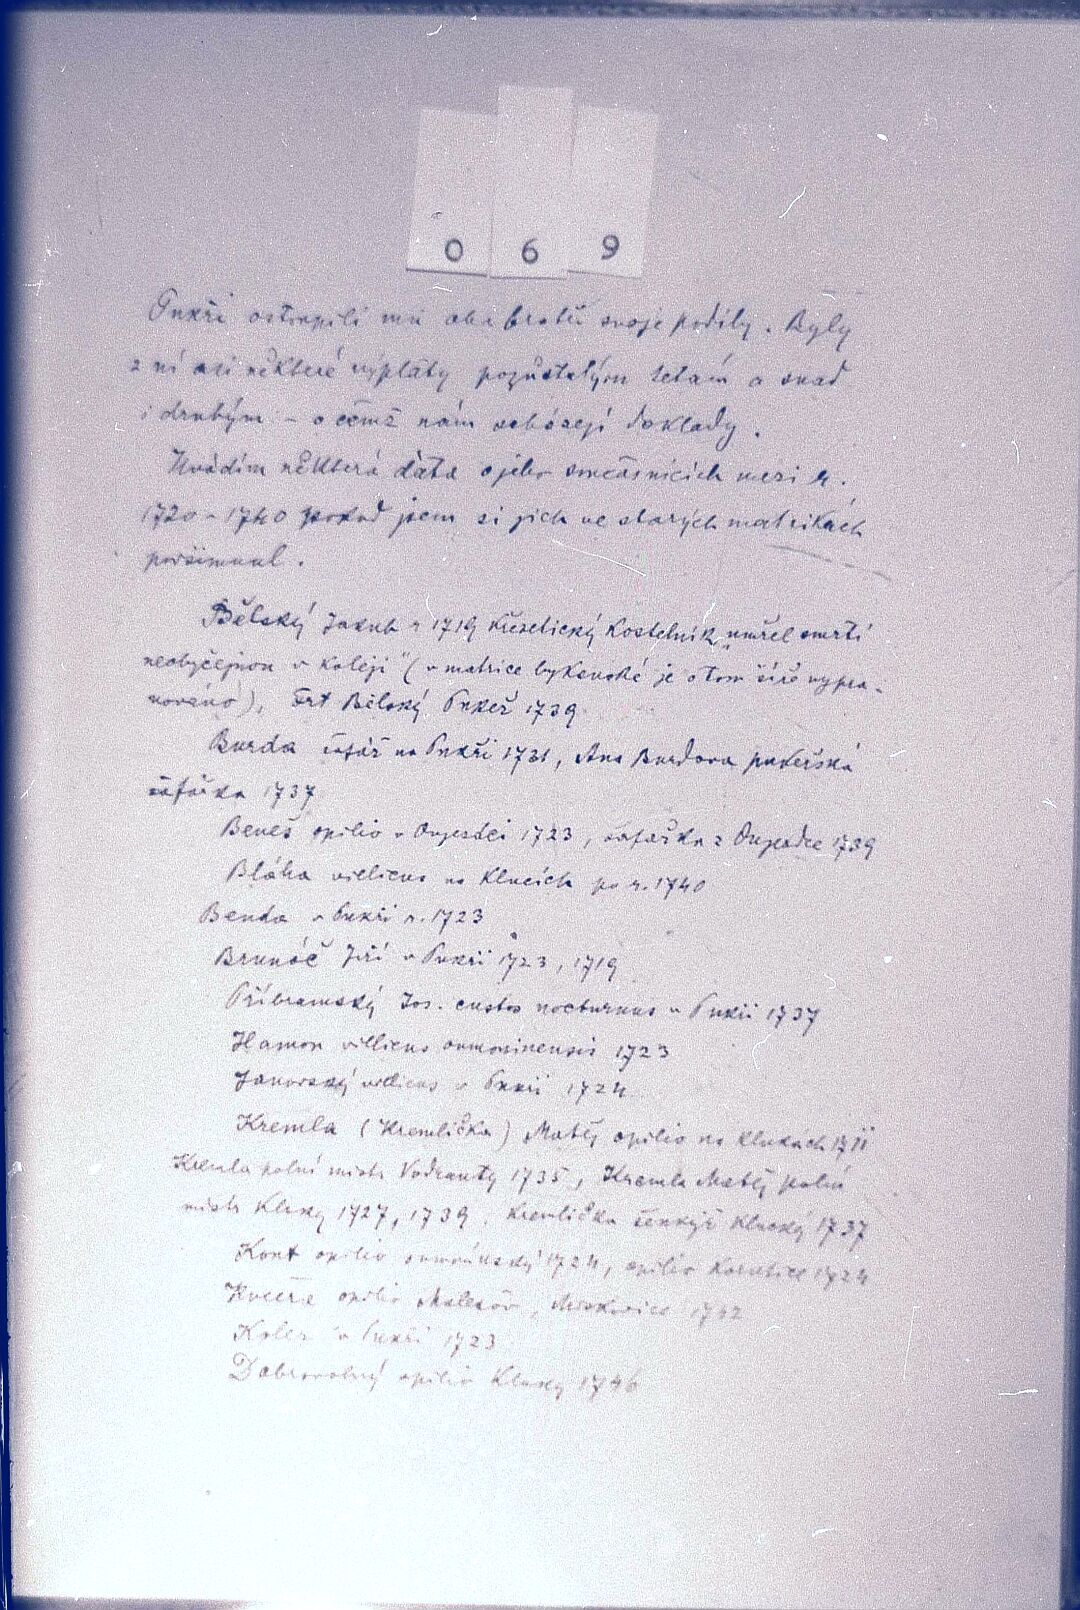 0 6 9
Pukři ostoupili mu oba bratři svoje podíly. Byly
z ní asi některé výplaty pozůstalým tetám a snad
i druhým – o čemž nám scházejí doklady.
Uvádím některá dáta o jeho současnících mezi r.
1720 – 1740 pokud jsem si jich ve starých matrikách
povšimnul.
Bělský Jakub r 1719 křesetický kostelník „umřel smrtí
neobyčejnou v koleji“ (v matrice bykanské je o tom šíře vypra-
vováno), Frt Bělský Pukeř 1739
Burda šafář na Pukři 1731, Ana Burdova pukeřská
šafářka 1737
Beneš opilio v Oujezdci 1723, šafářka z Oujezdce 1739
Bláha villicus na Klucích po r. 1740
Benda v Pukři r. 1723
Brunáč Jiří v Pukři 1723, 1719
Příbramský Jos. custos nocturnus v Pukři 1737
Hamon villicus 1723
Janovský villicus v Pukři 1724
Kremla (Kremlička) Matěj opilio na Klukách
Kremla polní mistr Vodranty 1735, Kremla Matěj polní
mistr Kluky 1727, 1739, Kremlička šenkýř Klucky 1737
Kont opilio 1724, opilio 1724
Kučera opilio Malešov, Miskovice 1742
Koler v Pukři 1723
Dobrovolný opilio Kluky 1746